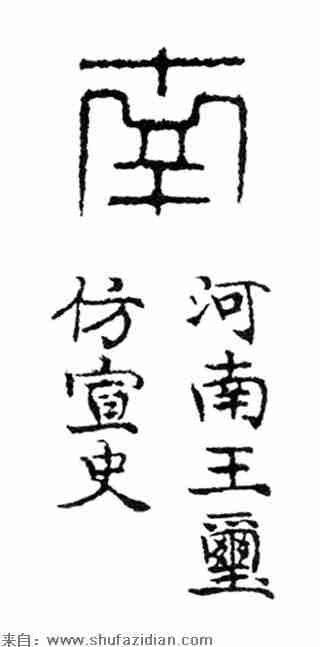 南
河南王璽
仿宣史
来自：www.shufazidian.com